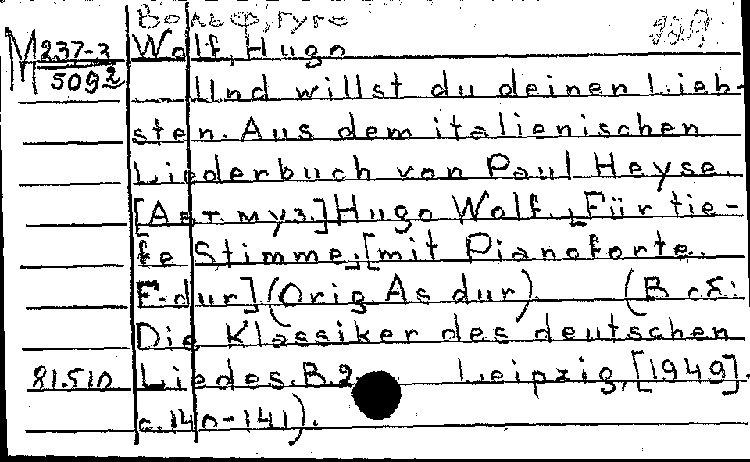 Вольф, Гуго
M 237-3
5092
Wolf, Hugo
Und willst du deinen Lieb-
sten. Aus dem italienischen
Liederbuch von Paul Heyse.
[Авт. муз.] Hugo Wolf. Für tie-
fe Stimme, [mit Pianoforte.
F-dur] (Orig As dur) (В сб:
Die Klassiker des deutschen
81.510 Liedes. B. 2 Leipzig, [1949].
с. 140-141).